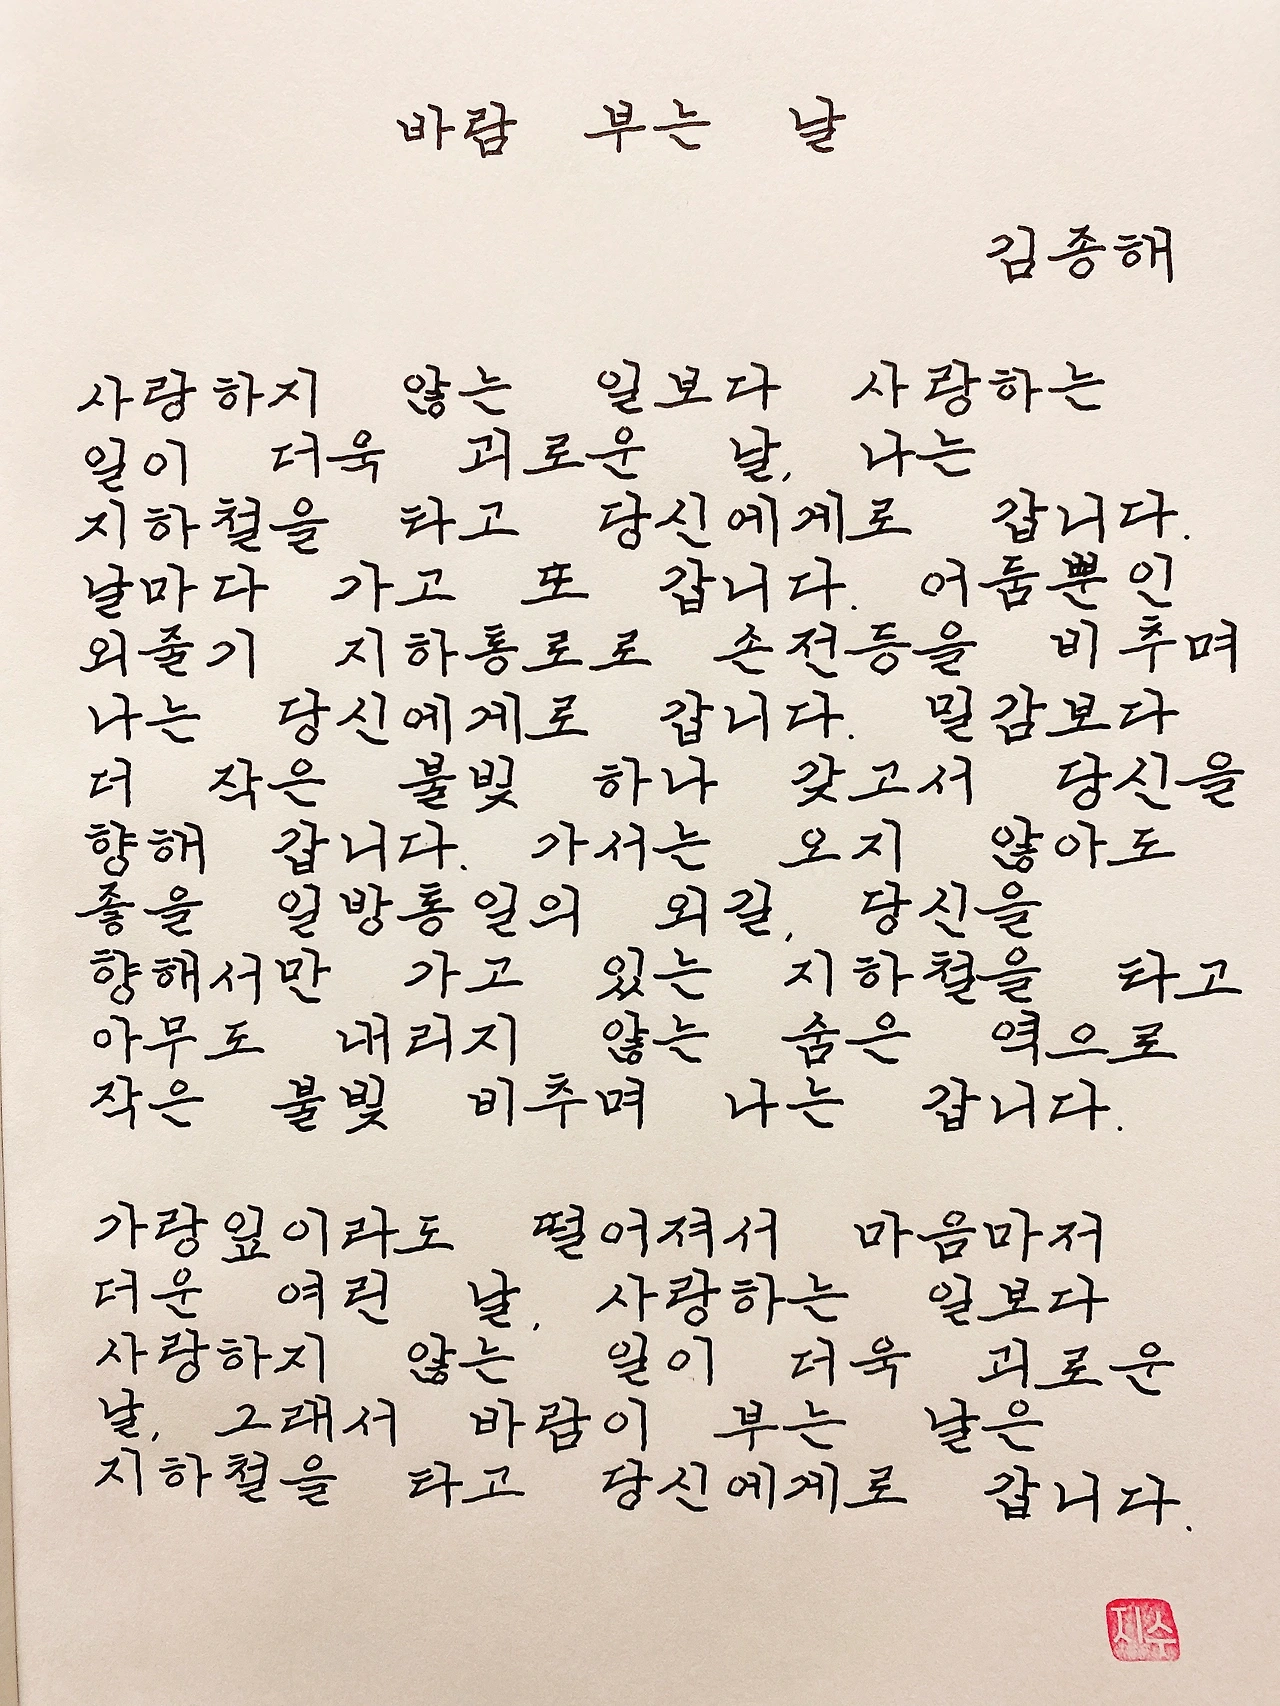 바람 부는 날
김종해
사랑하지 않는 일보다 사랑하는
일이 더욱 괴로운 날, 나는
지하철을 타고 당신에게로 갑니다.
날마다 가고 또 갑니다. 어둠뿐인
외줄기 지하통로로 손전등을 비추며
나는 당신에게로 갑니다. 밀감보다
더 작은 불빛 하나 갖고서 당신을
향해 갑니다. 가서는 오지 않아도
좋을 일방통일의 외길, 당신을
향해서만 가고 있는 지하철을 타고
아무도 내리지 않는 숨은 역으로
작은 불빛 비추며 나는 갑니다.
가랑잎이라도 떨어져서 마음마저
더운 여린 날, 사랑하는 일보다
사랑하지 않는 일이 더욱 괴로운
날, 그래서 바람이 부는 날은
지하철을 타고 당신에게로 갑니다.
지수